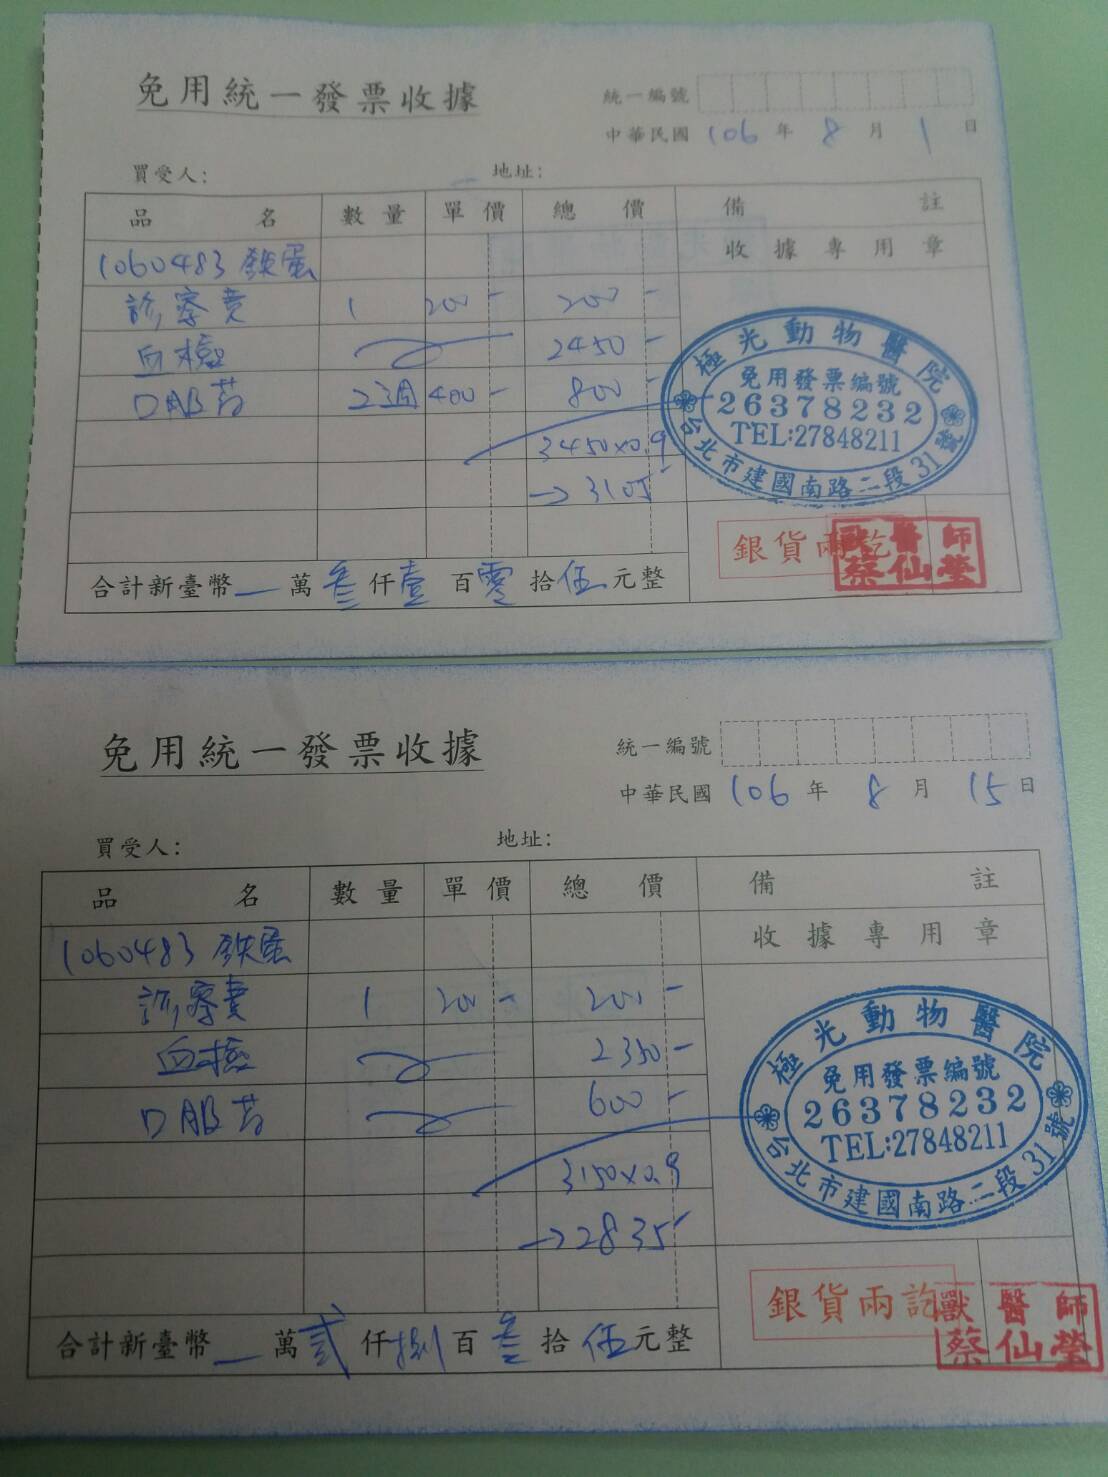 免用統一發票收據
統一編號
中華民國 106 年 8 月 1 日
買受人: 地址:
品名 數量 單價 總價 備註
收據專用章
1060483 鉄蛋
診察費 1 200- 200-
血檢 2450-
口服葯 2週 400- 800-
3450x0.9
→3105
極光動物醫院
免用發票編號
26378232
TEL:27848211
台北市建國南路二段31號
銀貨兩訖
獸醫師
蔡仙瑩
合計新臺幣 一 萬 叁 仟 壹 百 零 拾 伍 元整
免用統一發票收據
統一編號
中華民國 106 年 8 月 15 日
買受人: 地址:
品名 數量 單價 總價 備註
收據專用章
1060483 鉄蛋
診察費 1 200- 200-
血檢 2350-
口服葯 600-
3150x0.9
→2835
極光動物醫院
免用發票編號
26378232
TEL:27848211
台北市建國南路二段31號
銀貨兩訖
獸醫師
蔡仙瑩
合計新臺幣 一 萬 貳 仟 捌 百 叁 拾 伍 元整